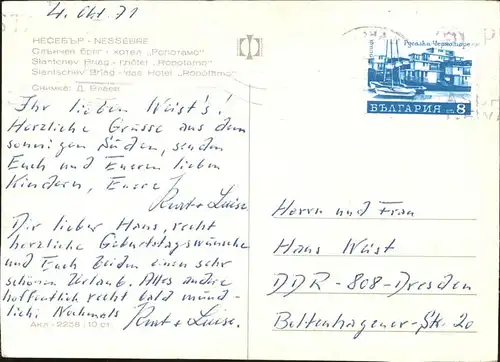 4. Okt. 71
НЕСЕБЪР - NESSÈBRE
Слънчев бряг - хотел „Ропотамо"
Slantchev Briag - l'hôtel „Ropotamo"
Slantschev Briag - das Hotel „Ropotamo"
Снимка: Д. Влаев
Ihr lieben Weist's!
Herzliche Grüsse aus dem
sonnigen Süden, senden
Euch und Eueren lieben
Kindern, Euere
Kurt + Luise.
Dir lieber Hans, recht
herzliche Geburtstagswünsche
und Euch beiden einen sehr
schönen Urlaub. Alles andere
hoffentlich recht bald münd-
lich. Nochmals
Kurt + Luise.
АКЛ - 2258 / 10 ст.
Русалка Черноморие
поща
БЪЛГАРИЯ ст. 8
Herrn und Frau
Hans Weist
DDR - 808 - Dresden
Beltenhagener - Str. 20